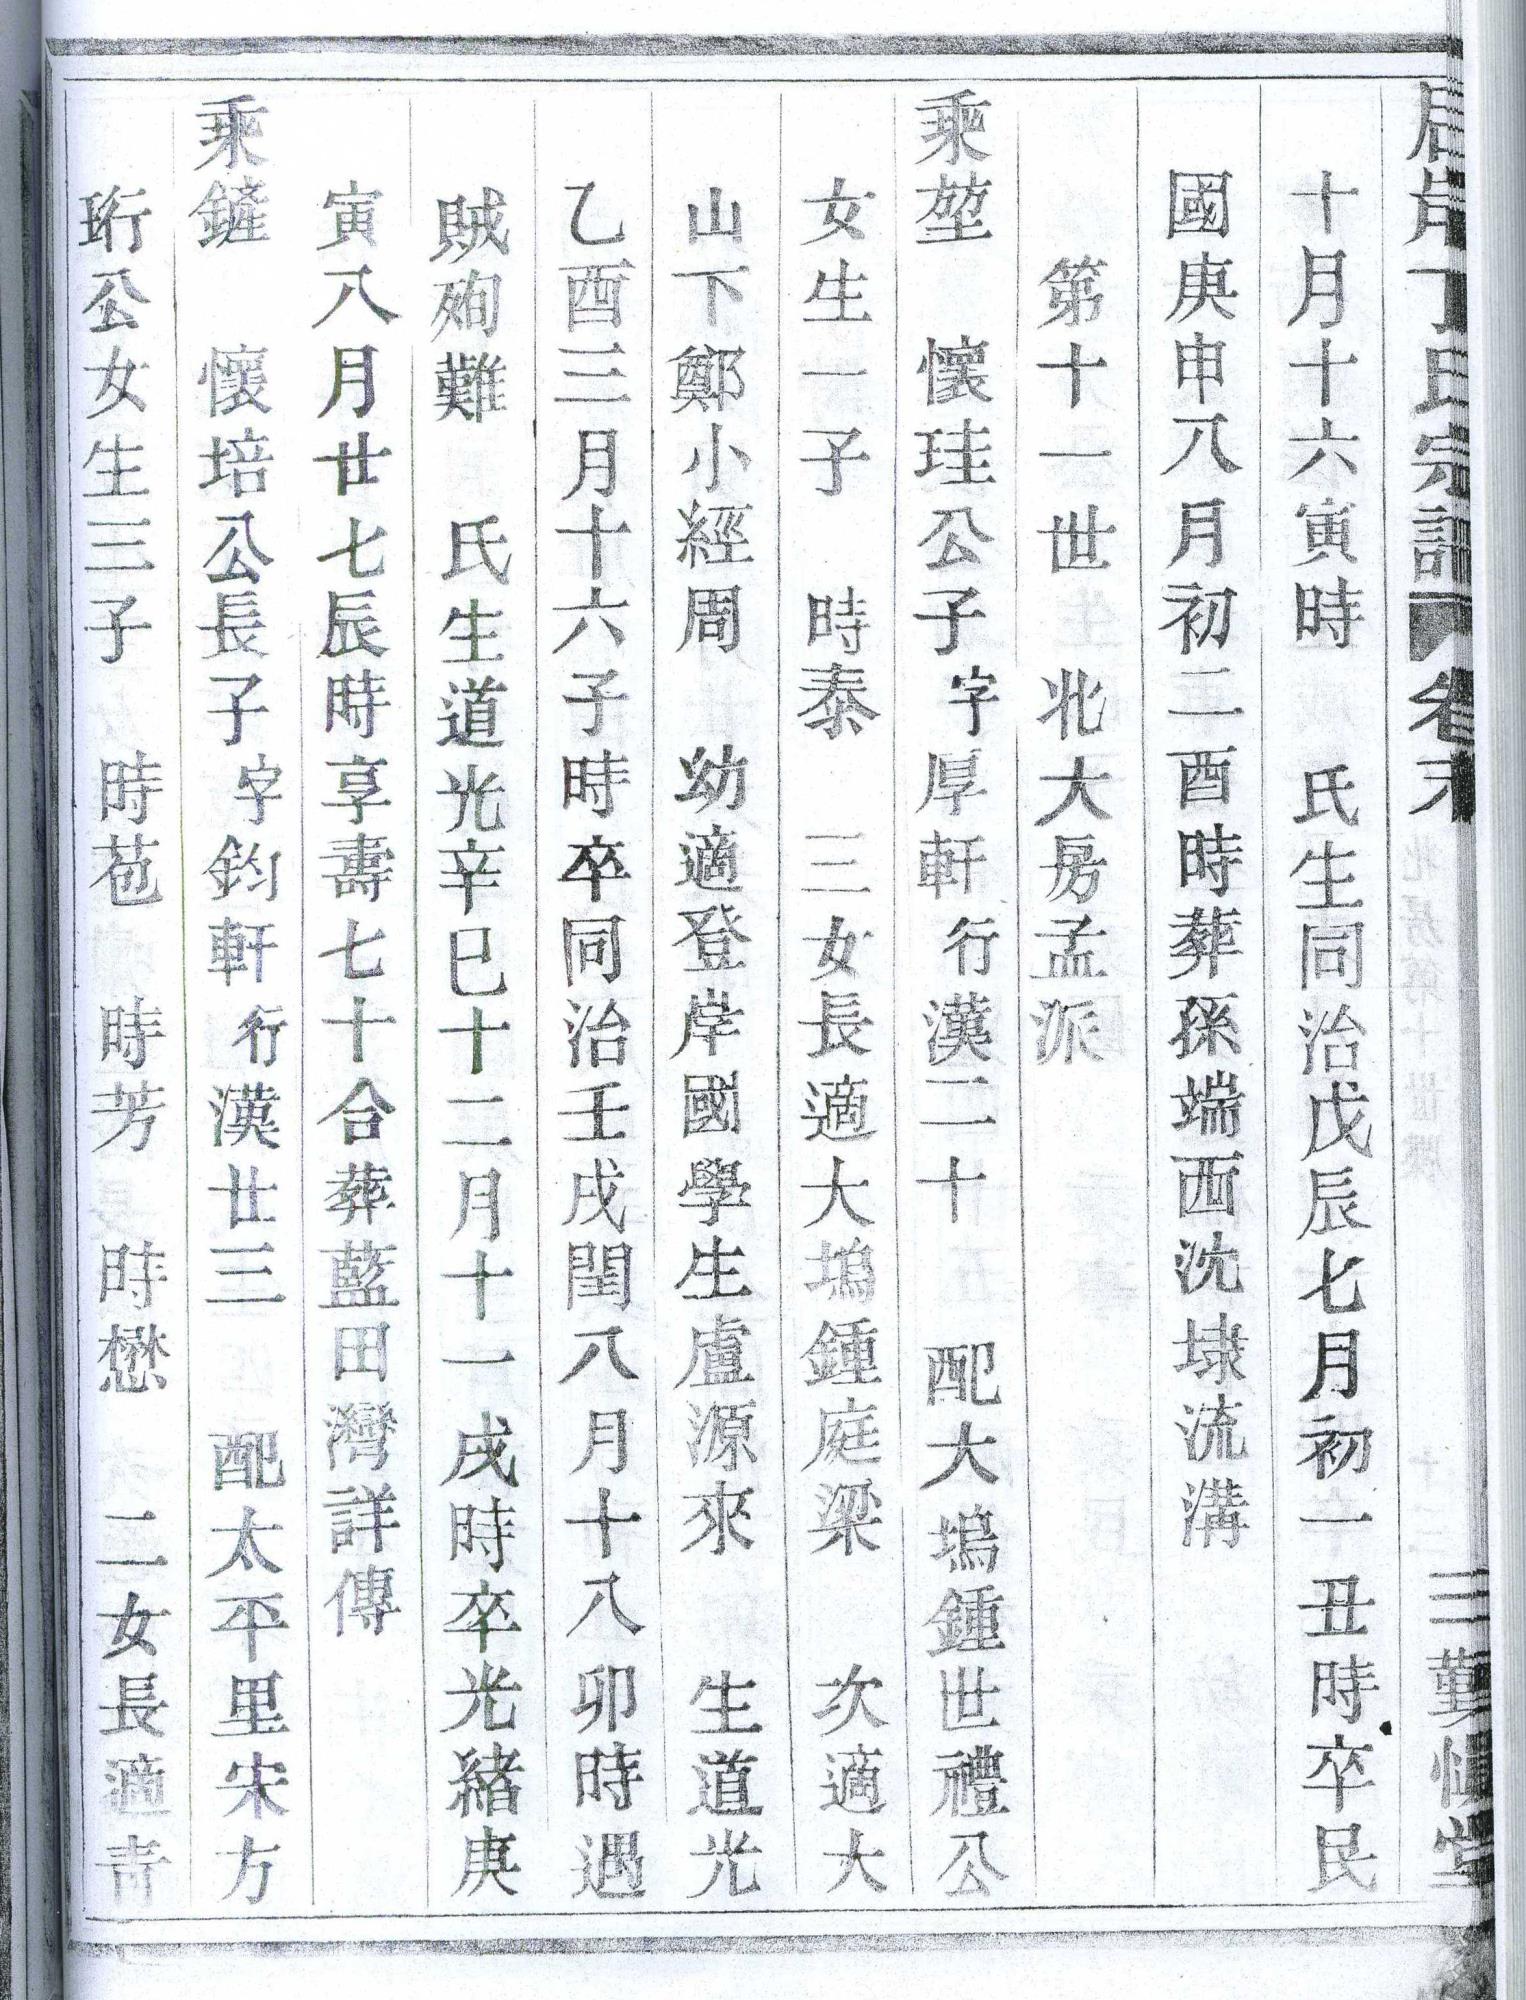 丁氏宗譜 卷末 三 勤慎堂
十月十六寅時 氏生同治戊辰七月初一丑時卒民
國庚申八月初二酉時葬孫端西沈埭流溝
第十一世 北大房孟派
乘堃 懷珪公子字厚軒行漢二十 配大塢鍾世禮公
女生一子 時泰 三女長適大塢鍾庭梁 次適大
山下鄭小經周 幼適登岸國學生盧源來 生道光
乙酉三月十六子時卒同治壬戌閏八月十八卯時遇
賊殉難 氏生道光辛巳十二月十一戌時卒光緒庚
寅八月廿七辰時享壽七十合葬藍田灣詳傳
乘鏟 懷培公長子字鈞軒行漢廿三 配太平里宋方
珩公女生三子 時苞 時芳 時懋 二女長適青